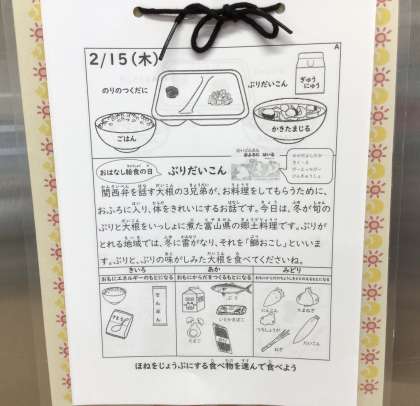 2/15(木)
A
のりのつくだに
ぶりだいこん
ぎゅうにゅう
ごはん
かきたまじる
おはなし給食の日
ぶりだいこん
関西弁を話す大根の3兄弟が、お料理をしてもらうために、
おふろに入り、体をきれいにするお話です。今日は、冬が旬の
ぶりと大根をいっしょに煮た富山県の郷土料理です。ぶりが
とれる地域では、冬に雷がなり、それを「鰤おこし」といいま
す。ぶりと、ぶりの味がしみた大根を食べてくださいね。
きいろ
あか
みどり
おもにエネルギーのもとになる
おもにからだをつくるもとになる
ぶり
でんぷん
さとう
いとかまぼこ
たまご
にんじん
たまねぎ
しょうが
ねぎ
だいこん
ほねをじょうぶにする食べ物を進んで食べよう